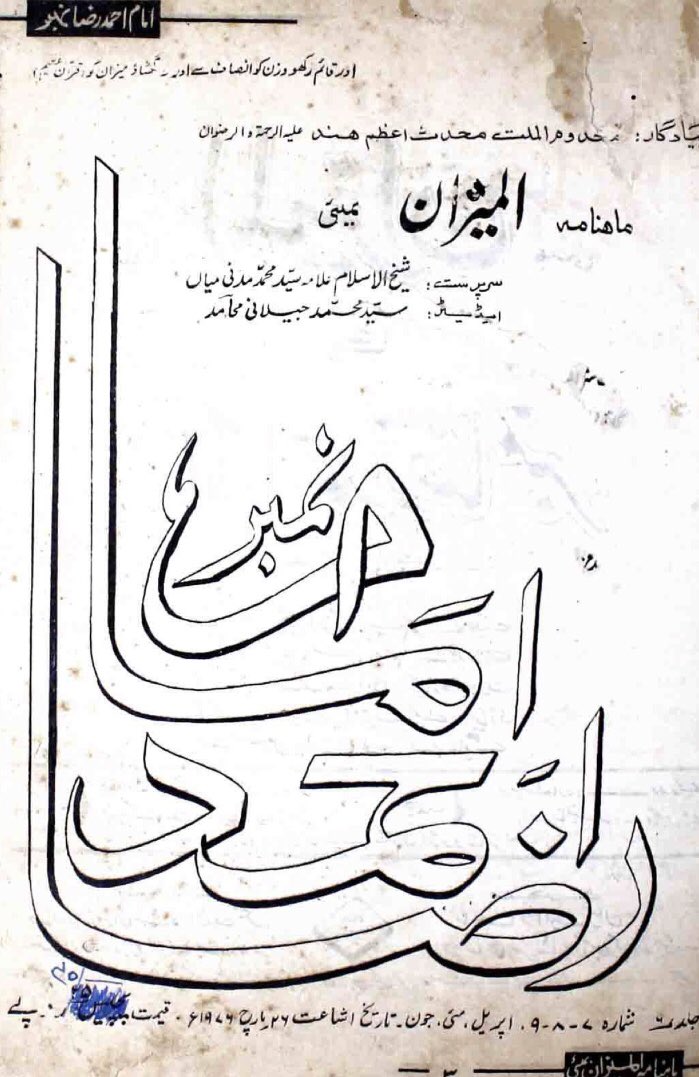 امام احمد رضا نمبر
اور قائم رکھو وزن کو انصاف سے اور نہ گھٹاؤ میزان کو (قرآن عظیم)
یادگار: مخدوم الملت محدث اعظم هند علیہ الرحمۃ والرضوان
ماهنامہ المیزان بمبئی
سرپرست: شیخ الاسلام علامہ سیّد محمد مدنی میاں
ایڈیٹر: سیّد محمد جیلانی محامد
امام
احمد
رضا
نمبر
جلد ۶ شمارہ ۷-۸-۹، اپریل، مئی، جون۔ تاریخ اشاعت ۲۶ مارچ ۱۹۷۶ء، قیمت روپے
ماہنامہ المیزان بمبئی
۳